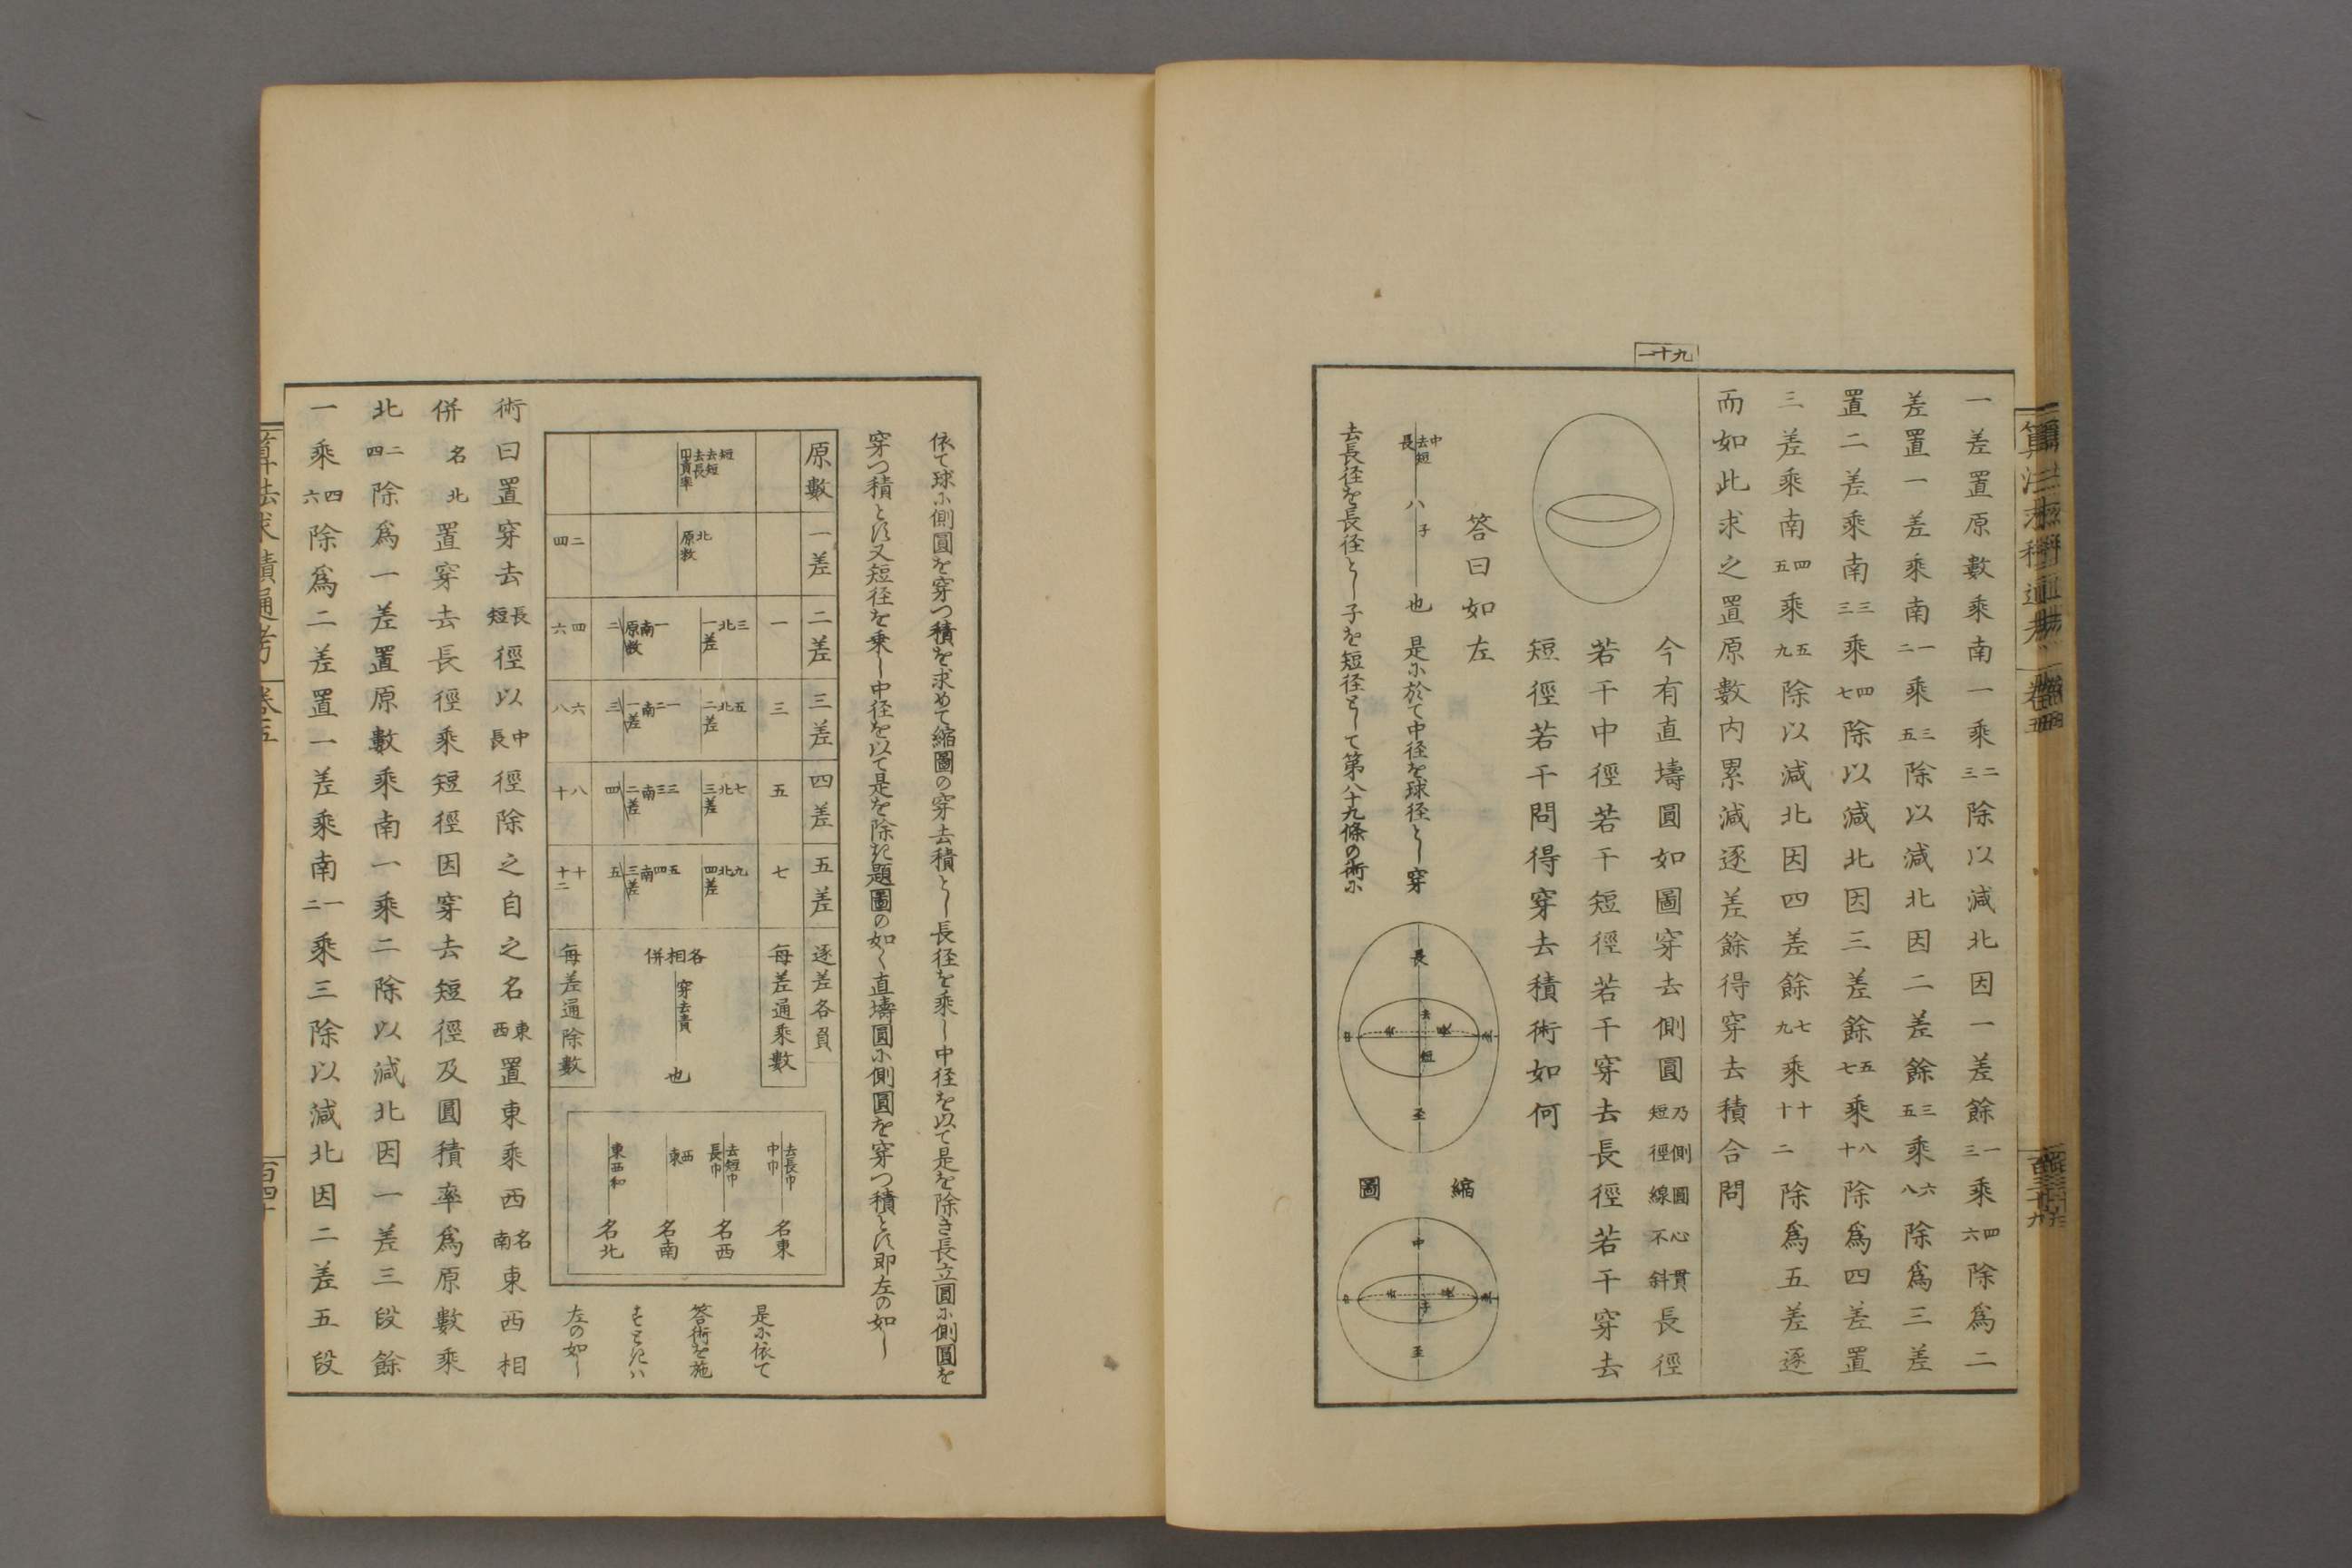 一差置原數乘南一乘二三除以減北因一差餘一三乘四六除爲二
差置一差乘南一二乘三五除以減北因二差餘三五乘六八除爲三差
置二差乘南三三乘四七除以減北因三差餘五七乘八十除爲四差置
三差乘南四五乘五九除以減北因四差餘七九乘十十二除爲五差逐
而如此求之置原數内累減逐差餘得穿去積合問
九十一
今有直壔圓如圖穿去側圓乃側圓心貫短徑線不斜長徑
若干中徑若干短徑若干穿去長徑若干穿去
短徑若干問得穿去積術如何
答曰如左
中去短
長
八子
也
是ニ於て中径を球径とし穿
去長径を長径とし子を短径として第八十九條の術ニ
長
去
短
至
縮圖
中
子
至
依て球ニ側圓を穿つ積を求めて縮圖の穿去積とし長径を乘し中径を以て是を除き長立圓ニ側圓を
穿つ積とす又短径を乘し中径を以て是を除き題圖の如く直壔圓ニ側圓を穿つ積とす即左の如し
原數
一差
二差
三差
四差
五差
逐差各負
一
三
五
七
每差通乘數
短去短
去長
圓責率
北
原數
三北一差
五北二差
七北三差
九北四差
一南原數
二
二一南一差
三
三三南二差
四
五四南三差
五
各相併
穿去責
也
二四
四六
六八
八十
十十二
每差通除數
去長巾
中巾
名東
去短巾
長巾
名西
西東
名南
東西和
名北
是ニ依て
答術を施
左の如し
術曰置穿去長短徑以中長徑除之自之名東西置東乘西名南東西相
併名北置穿去長徑乘短徑因穿去短徑及圓積率爲原數乘
北二四除爲一差置原數乘南一乘二除以減北因一差三段餘
一乘四六除爲二差置一差乘南一二乘三除以減北因二差五段
算法求積通考
卷五
百四十